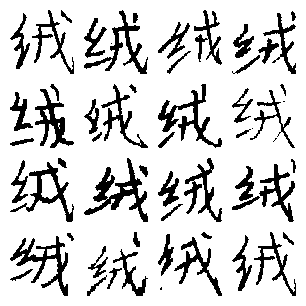 绒绒绒绒
绒绒绒绒
绒绒绒绒
绒绒绒绒